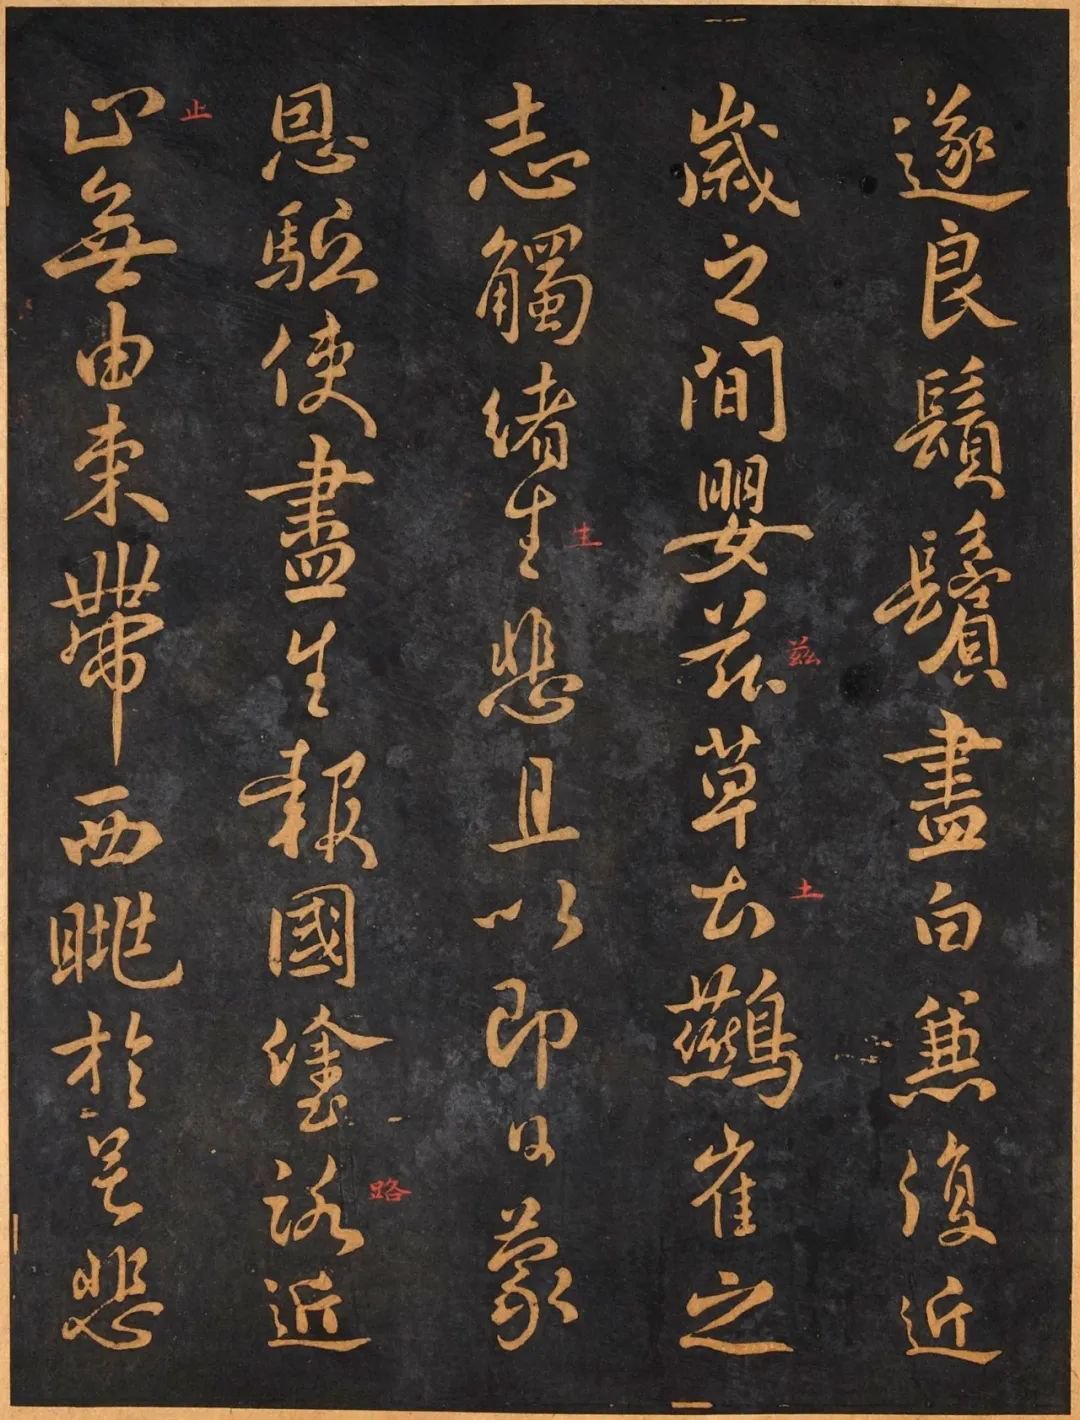 遂良鬚鬢盡白兼復近
歲之間嬰茲草土鷰雀之
茲
土
志觸緒生悲且以即日蒙
生
恩駈使盡生報國塗路近
路
止無由束帶西眺於邑悲
止